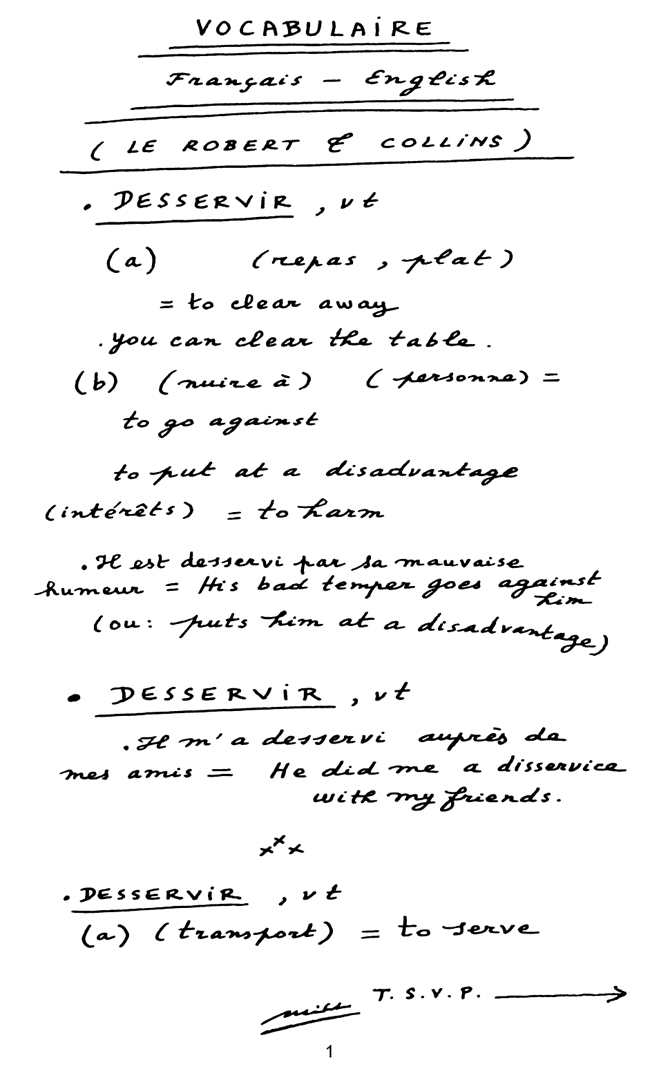 VOCABULAIRE
Français - English
( LE ROBERT & COLLINS )
. DESSERVIR , vt
(a) (repas , plat)
= to clear away
. you can clear the table .
(b) (nuire à) ( personne) =
to go against
to put at a disadvantage
(intérêts) = to harm
. Il est desservi par sa mauvaise
humeur = His bad temper goes against
him
(ou : puts him at a disadvantage)
• DESSERVIR , vt
. Il m'a desservi auprès de
mes amis = He did me a disservice
with my friends.
xxx
. DESSERVIR , vt
(a) (transport) = to serve
T. S. V. P. →
1